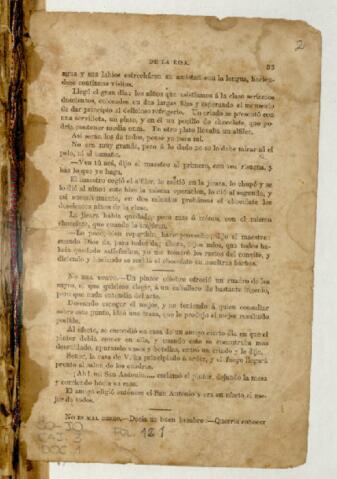 DE LA RISA. 33
2
mesa y sus labios estrecharon su amistad con la lengua, haciendose continuas visitas.
Llegó el gran dia: los niños que asistíamos á la clase seriamos
doscientos, colocados en dos largas filas y esperando el momento
de dar principio al delicioso refrigerio. Un criado se presentó con
una servilleta, un plato, y en él un pocillo de chocolate, que podria contener media onza. En otro plato llevaba un alfiler.
Así serán los de todos, pense yo para mí.
No era muy grande, pero á lo dado no se le debe mirar ni el
pelo, ni el tamaño.
—Ven tú acá, dijo el maestro al primero, con voz risueña, y
haz lo que yo haga.
El maestro cogió el alfiler, lo metió en la jícara, lo chupó y se
lo dió al niño: este hizo la misma operacion, lo dió al segundo, y
así sucesivamente, en dos minutos probamos el chocolate los
doscientos niños de la clase.
La jícara habia quedado, poco más ó ménos, con el mismo
chocolate, que cuando la trajeron.
—Lo poco, bien repartido, hace provecho, dijo el maestro:
cuando Dios da, para todos da; ahora, hijos mios, que todos habeis quedado satisfechos, yo me tomaré los restos del convite, y
diciendo y haciendo se sorbió el chocolate en nuestras barbas.
No era tonto.—Un pintor célebre ofreció un cuadro de los
suyos, el que quisiese elegir, á un caballero de bastante ingenio,
pero que nada entendia del arte.
Deseando escoger el mejor, y no teniendo á quien consultar
sobre este punto, ideó una traza, que le produjo el mejor resultado posible.
Al efecto, se escondió en casa de un amigo cierto dia en que el
pintor debia comer en ella, y cuando este se encontraba mas
descuidado, apurando vasos y botellas, entró un criado y le dijo.
Señor, la casa de V. ha principiado á arder, y el fuego llegará
pronto al salon de los cuadros.
¡Ah!. mi San Antonio..... exclamó el pintor, dejando la mesa
y corriendo hácia su casa.
El amigo eligió entónces el San Antonio y era en efecto el mejor de todos.
No es mal deseo.—Decia un buen hombre:—Querria conocer
CO-JO
CAJ. 3
DOC. 1
FOL. 121